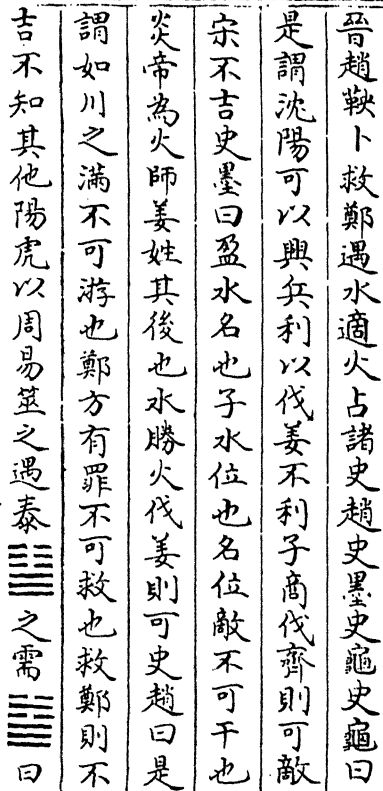 晉趙鞅卜救鄭遇水適火占諸史趙史墨史龜史龜曰
是謂沈陽可以興兵利以伐姜不利子商伐齊則可敵
宋不吉史墨曰盈水名也子水位也名位敵不可干也
炎帝為火師姜姓其後也水勝火伐姜則可史趙曰是
謂如川之滿不可游也鄭方有罪不可救也救鄭則不
吉不知其他陽虎以周易筮之遇泰䷊之需䷄曰